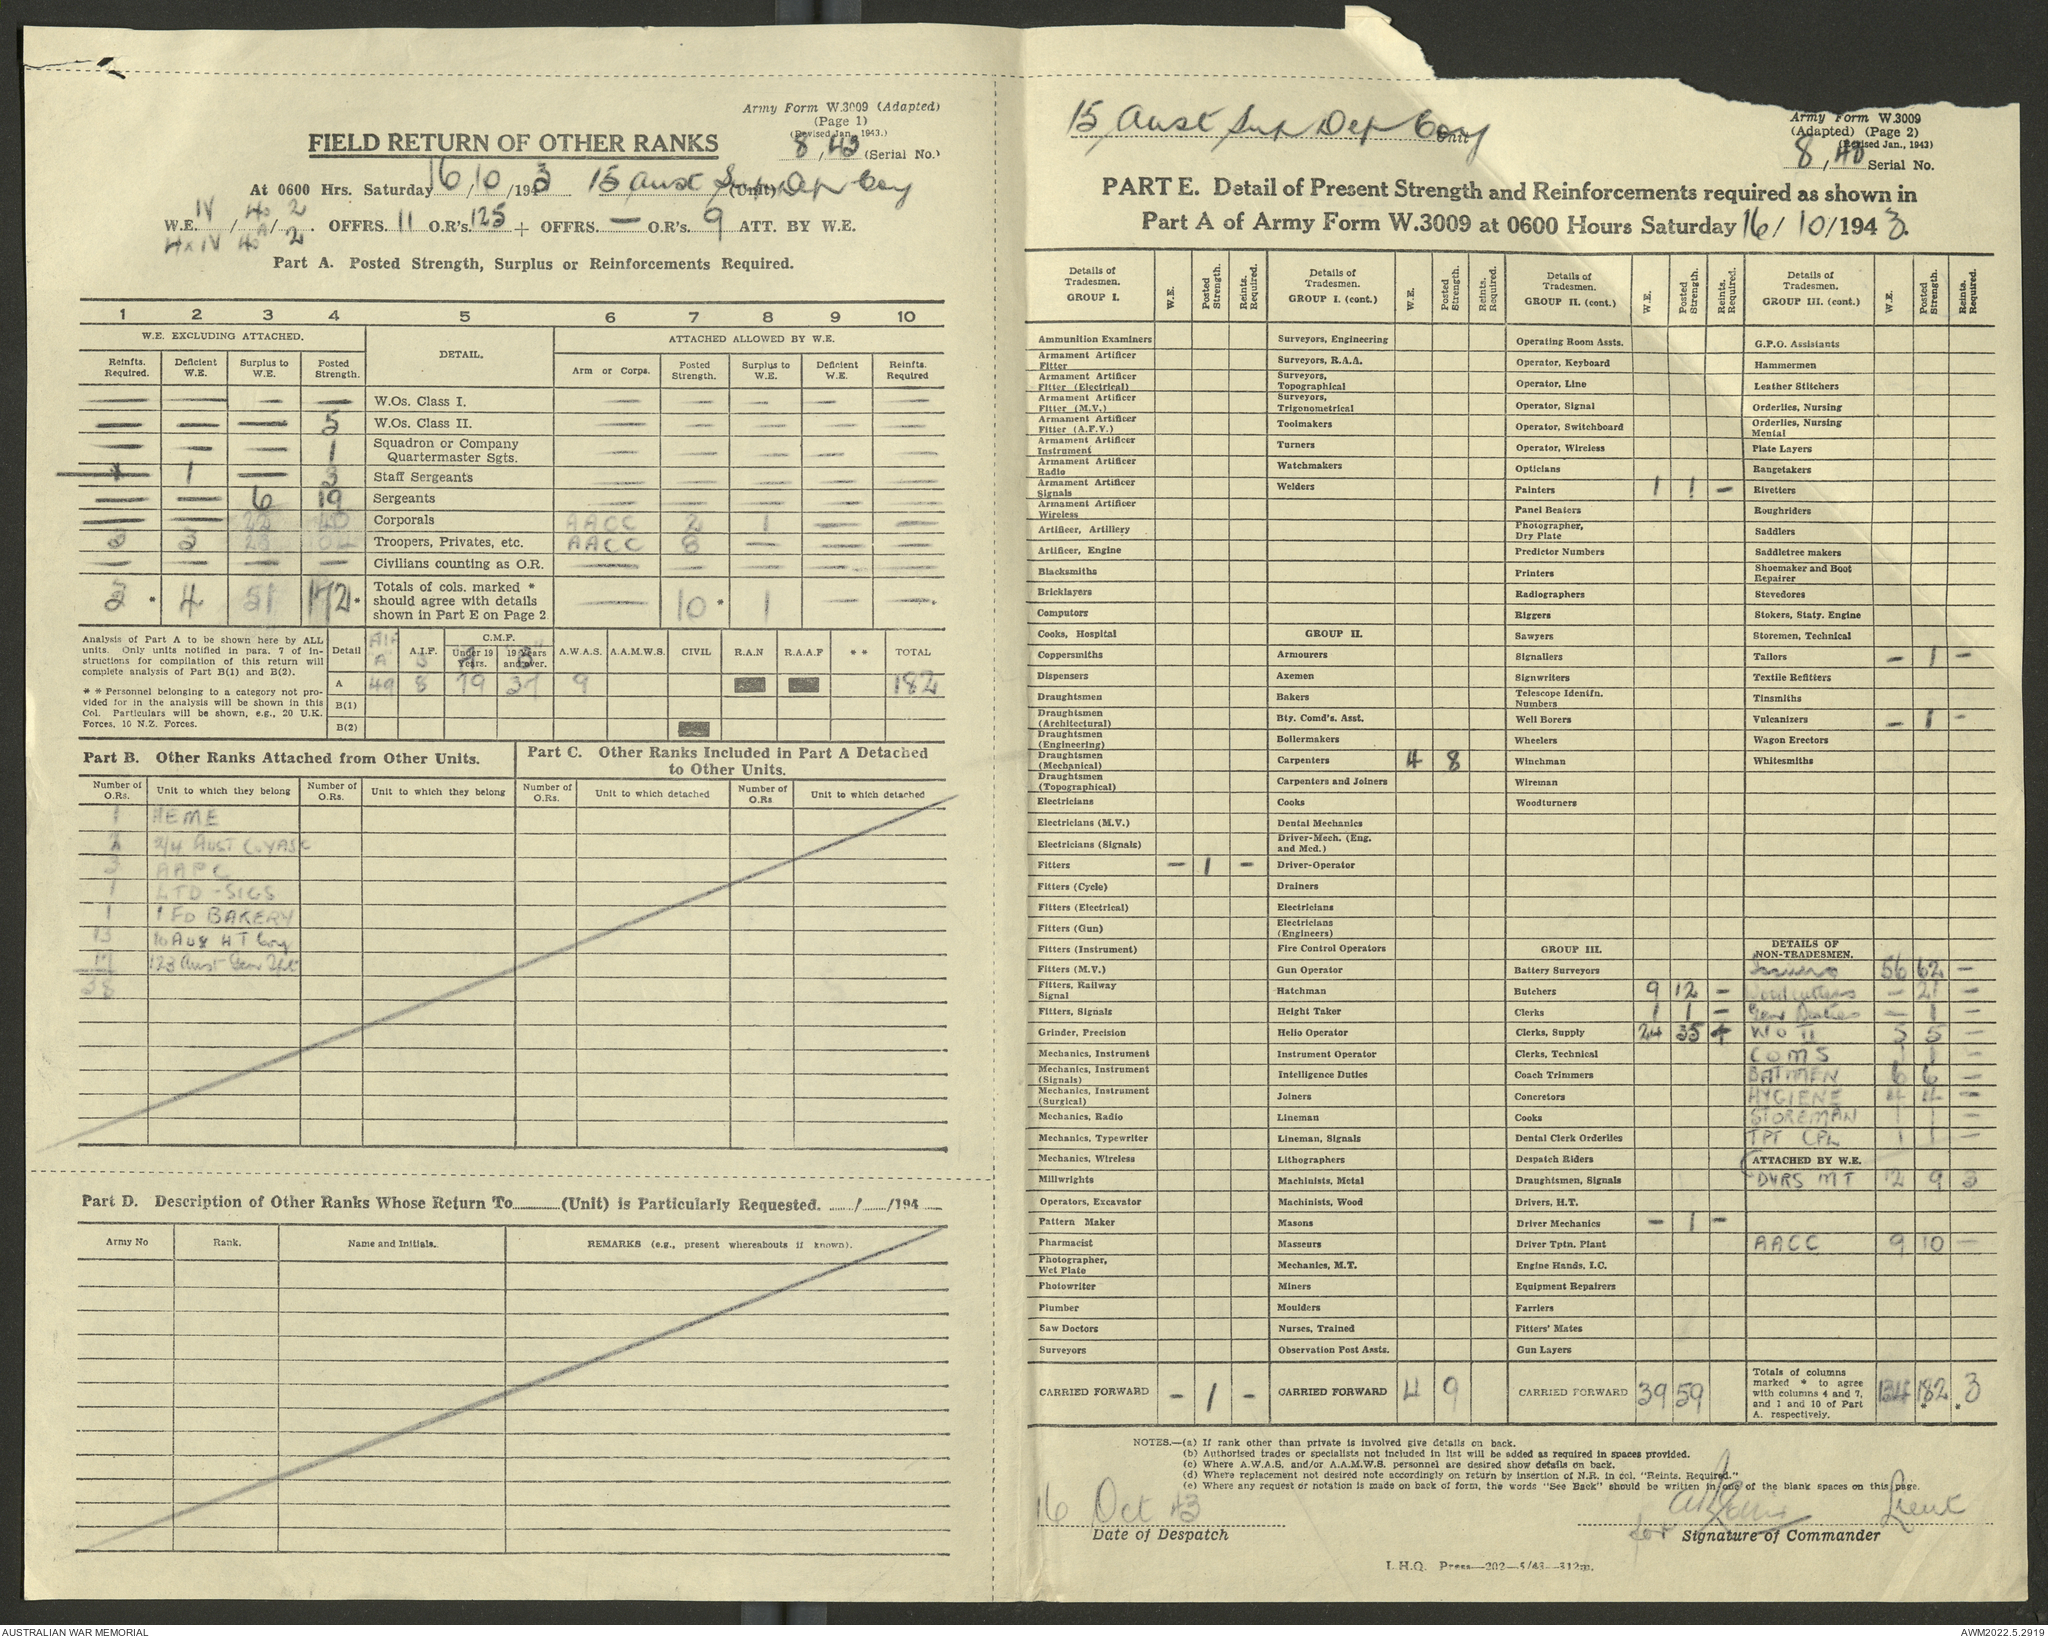 Army Form W.3009 (Adapted)
(Page 1)
(Revised Jan., 1943.)
FIELD RETURN OF OTHER RANKS
8, 43 (Serial No.)
At 0600 Hrs. Saturday 16/10/1943 15 Aust Sup Dep Coy (Unit)
W.E. IV / 40 / 2 OFFRS. 11 O.R's. 125 + OFFRS. — O.R's. 9 ATT. BY W.E.
IV 40A 2
Part A. Posted Strength, Surplus or Reinforcements Required.
1 2 3 4 5 6 7 8 9 10
W.E. EXCLUDING ATTACHED. DETAIL. ATTACHED ALLOWED BY W.E.
Reinfts. Required. Deficient W.E. Surplus to W.E. Posted Strength. Arm or Corps. Posted Strength. Surplus to W.E. Deficient W.E. Reinfts. Required
— — — — W.Os. Class I. — — — — —
— — — 5 W.Os. Class II. — — — — —
— — — 1 Squadron or Company Quartermaster Sgts. — — — — —
1 — 3 Staff Sergeants — — — — —
— — 6 19 Sergeants — — — — —
— — 22 40 Corporals AACC 2 1 — —
3 3 23 Troopers, Privates, etc. AACC 8 — — —
— — — — Civilians counting as O.R. — — — — —
3 * 4 51 172 * Totals of cols. marked * should agree with details shown in Part E on Page 2 — 10 * 1 — — *
Analysis of Part A to be shown here by ALL units. Only units notified in para. 7 of instructions for compilation of this return will complete analysis of Part B(1) and B(2).
* * Personnel belonging to a category not provided for in the analysis will be shown in this Col. Particulars will be shown, e.g., 20 U.K. Forces, 10 N.Z. Forces.
C.M.F.
Detail AIF A A.I.F. B Under 19 Years. 19 Years and over. A.W.A.S. A.A.M.W.S. CIVIL R.A.N R.A.A.F * * TOTAL
A 49 8 79 37 9 182
B(1)
B(2)
Part B. Other Ranks Attached from Other Units.
Part C. Other Ranks Included in Part A Detached to Other Units.
Number of O.Rs. Unit to which they belong Number of O.Rs. Unit to which they belong Number of O.Rs. Unit to which detached Number of O.Rs Unit to which detached
1 AEME
2 2/4 AUST Coy AASC
3 AAPC
1 LTD - SIGS
1 1 FD BAKERY
13 10 Aust HT Coy
17 123 Aust Gen Tpt
38
Part D. Description of Other Ranks Whose Return To (Unit) is Particularly Requested. / /194
Army No Rank. Name and Initials. REMARKS (e.g., present whereabouts if known).
15 Aust Sup Dep Coy Unit
Army Form W.3009
(Adapted) (Page 2)
(Revised Jan., 1943)
8, 43 Serial No.
PART E. Detail of Present Strength and Reinforcements required as shown in
Part A of Army Form W.3009 at 0600 Hours Saturday 16/10/1943.
Details of Tradesmen. GROUP I. W.E. Posted Strength. Reints. Required.
Ammunition Examiners
Armament Artificer Fitter
Armament Artificer Fitter (Electrical)
Armament Artificer Fitter (M.V.)
Armament Artificer Fitter (A.F.V.)
Armament Artificer Instrument
Armament Artificer Radio
Armament Artificer Signals
Armament Artificer Wireless
Artificer, Artillery
Artificer, Engine
Blacksmiths
Bricklayers
Computors
Cooks, Hospital
Coppersmiths
Dispensers
Draughtsmen
Draughtsmen (Architectural)
Draughtsmen (Engineering)
Draughtsmen (Mechanical)
Draughtsmen (Topographical)
Electricians
Electricians (M.V.)
Electricians (Signals)
Fitters — 1 —
Fitters (Cycle)
Fitters (Electrical)
Fitters (Gun)
Fitters (Instrument)
Fitters (M.V.)
Fitters, Railway Signal
Fitters, Signals
Grinder, Precision
Mechanics, Instrument
Mechanics, Instrument (Signals)
Mechanics, Instrument (Surgical)
Mechanics, Radio
Mechanics, Typewriter
Mechanics, Wireless
Millwrights
Operators, Excavator
Pattern Maker
Pharmacist
Photographer, Wet Plate
Photowriter
Plumber
Saw Doctors
Surveyors
CARRIED FORWARD — 1 —
Details of Tradesmen. GROUP I. (cont.) W.E. Posted Strength. Reints. Required.
Surveyors, Engineering
Surveyors, R.A.A.
Surveyors, Topographical
Surveyors, Trigonometrical
Toolmakers
Turners
Watchmakers
Welders
GROUP II.
Armourers
Axemen
Bakers
Bty. Comd's. Asst.
Boilermakers
Carpenters 4 8
Carpenters and Joiners
Cooks
Dental Mechanics
Driver-Mech. (Eng. and Med.)
Driver-Operator
Drainers
Electricians
Electricians (Engineers)
Fire Control Operators
Gun Operator
Hatchman
Height Taker
Helio Operator
Instrument Operator
Intelligence Duties
Joiners
Lineman
Lineman, Signals
Lithographers
Machinists, Metal
Machinists, Wood
Masons
Masseurs
Mechanics, M.T.
Miners
Moulders
Nurses, Trained
Observation Post Assts.
CARRIED FORWARD 4 9
Details of Tradesmen. GROUP II. (cont.) W.E. Posted Strength. Reints. Required.
Operating Room Assts.
Operator, Keyboard
Operator, Line
Operator, Signal
Operator, Switchboard
Operator, Wireless
Opticians
Painters 1 1 —
Panel Beaters
Photographer, Dry Plate
Predictor Numbers
Printers
Radiographers
Riggers
Sawyers
Signallers
Signwriters
Telescope Identifn. Numbers
Well Borers
Wheelers
Winchman
Wireman
Woodturners
GROUP III.
Battery Surveyors
Butchers 9 12 —
Clerks 1 1 —
Clerks, Supply 24 35 —
Clerks, Technical
Coach Trimmers
Concretors
Cooks
Dental Clerk Orderlies
Despatch Riders
Draughtsmen, Signals
Drivers, H.T.
Driver Mechanics — 1 —
Driver Tptn. Plant
Engine Hands, I.C.
Equipment Repairers
Farriers
Fitters' Mates
Gun Layers
CARRIED FORWARD 39 59
Details of Tradesmen. GROUP III. (cont.) W.E. Posted Strength. Reints. Required.
G.P.O. Assistants
Hammermen
Leather Stitchers
Orderlies, Nursing
Orderlies, Nursing Mental
Plate Layers
Rangetakers
Rivetters
Roughriders
Saddlers
Saddletree makers
Shoemaker and Boot Repairer
Stevedores
Stokers, Staty. Engine
Storemen, Technical
Tailors — 1 —
Textile Refitters
Tinsmiths
Vulcanizers — 1 —
Wagon Erectors
Whitesmiths
DETAILS OF NON-TRADESMEN.
Issuers 56 62 —
Woodcutters — 21 —
Gen Duties — 1 —
WO II 5 5 —
CQMS 1 1 —
BATMEN 6 6 —
HYGIENE 4 4 —
STOREMAN 1 1 —
TPT CPL 1 1 —
ATTACHED BY W.E.
DVRS MT 12 9 3
AACC 9 10 —
Totals of columns marked * to agree with columns 4 and 7, and 1 and 10 of Part A. respectively. 134 182 * 3 *
NOTES.—(a) If rank other than private is involved give details on back.
(b) Authorised trades or specialists not included in list will be added as required in spaces provided.
(c) Where A.W.A.S. and/or A.A.M.W.S. personnel are desired show details on back.
(d) Where replacement not desired note accordingly on return by insertion of N.R. in col. "Reints. Required."
(e) Where any request or notation is made on back of form, the words "See Back" should be written in one of the blank spaces on this page.
16 Oct 43
Date of Despatch
for Lieut
Signature of Commander
L.H.Q. Press—202—5/43—312m.
AUSTRALIAN WAR MEMORIAL
AWM2022.5.2919